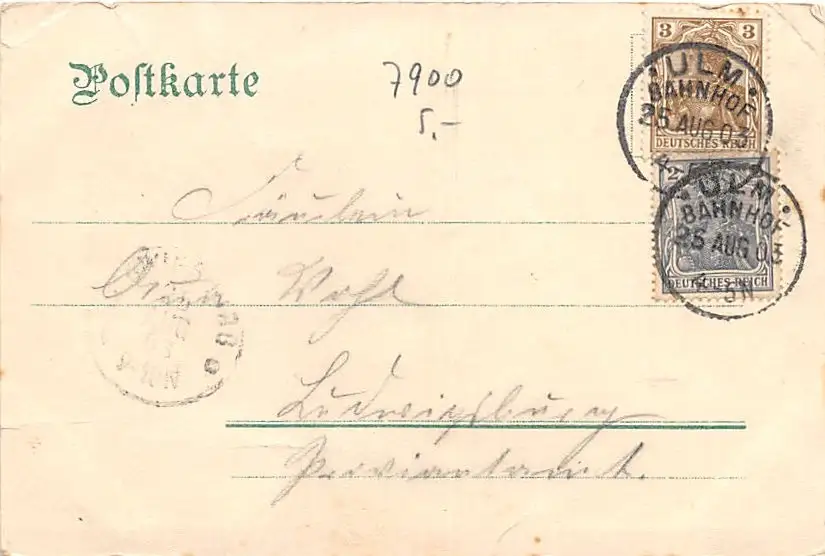 Postkarte
7900
5.-
3
ULM
BAHNHOF
25 AUG 03
DEUTSCHES REICH
2
ULM
BAHNHOF
25 AUG 03
4-5N
DEUTSCHES REICH
Fräulein
Vohl
Ludwigsburg
Proviantamt.